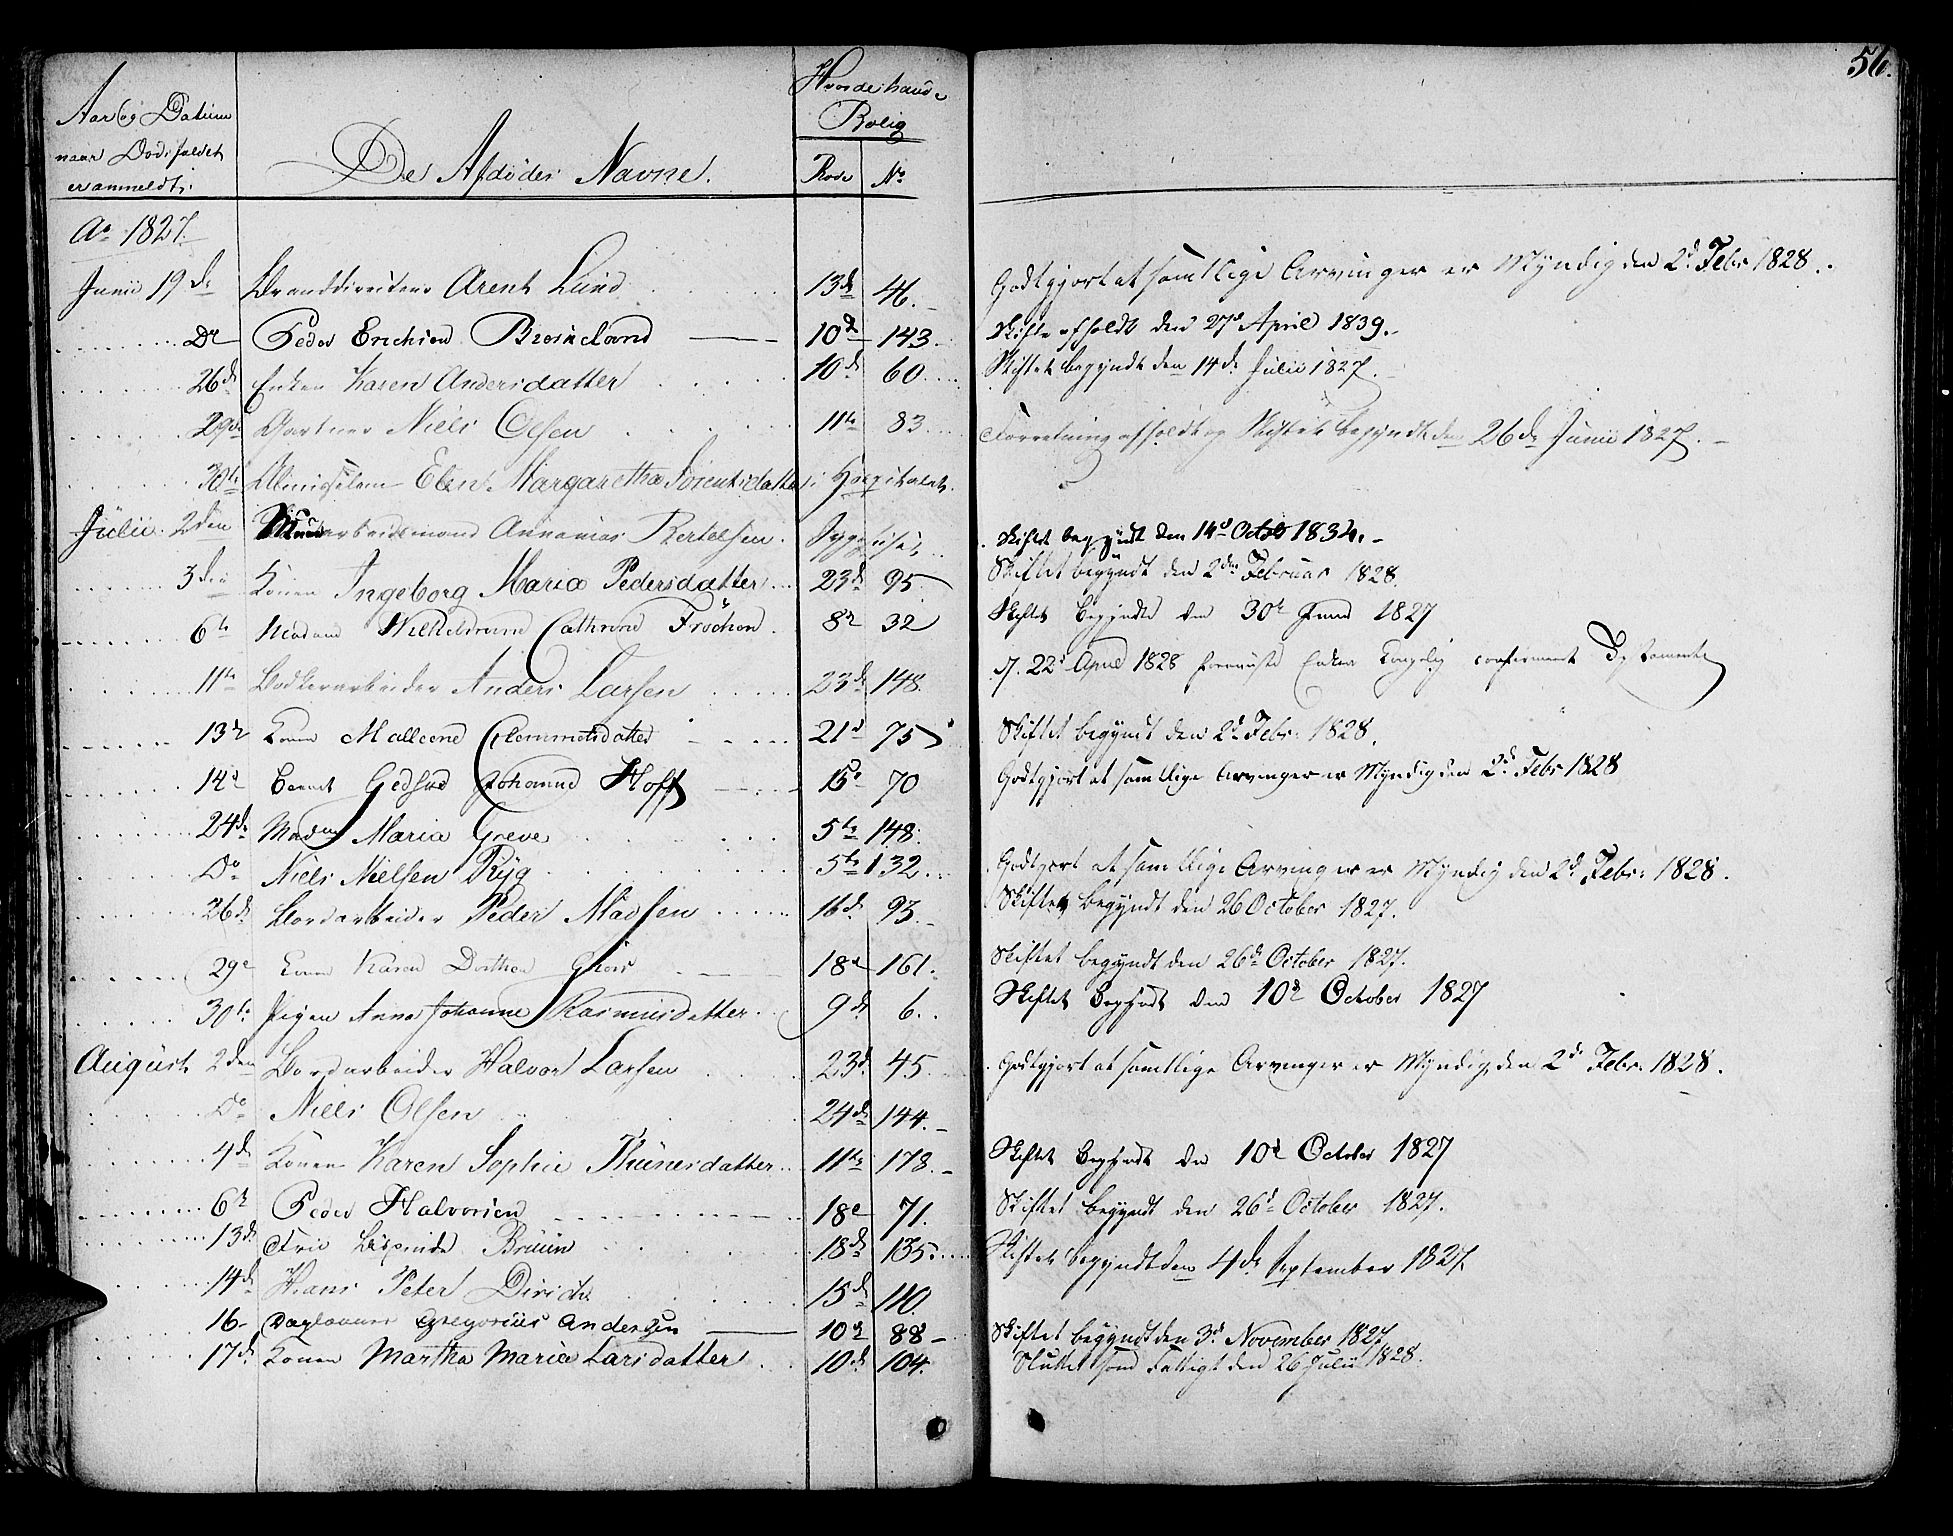 56.
Aar og Datum
naar Dødsfaldet
er anmeldt.
De Afdødes Navne.
Hvor de havde
Bolig
Rode No
Ao 1827.
Junii 19de Branddirecteur Arent Lund 13de 46. Godtgjort at samtlige Arvinger er Myndig den 2d Febr 1828.
Do Peder Erichsen 10d 143. Skifte afholdt den 27d April 1839.
26de Enken Karen Andersdatter 10de 60. Skiftet begyndt den 14de Julii 1827.
29de Gartner Niels Olsen 11te 83. Forretning afholdt og Skiftet begyndt den 26de Junii 1827.
30te Elen Margaretha Sørensdatter i Hospitalet.
Julii 2den arbeidsmand Annanias Bertelsen. Sygehuset. Skiftet begyndt den 14d Octob 1834.
3den Konen Ingeborg Maria Pedersdatter 23de 95 Skiftet begyndt den 2den Februar 1828.
6te Madame Cathrine 8d 32 Skiftet begyndte den 30te Junii 1827
11te Bødkerarbeider Anders Larsen 23de 148. d. 22d April 1828 foreviiste Enken Kongelig confirmeret Testamente
13d Konen Malleene Clemmetsdatter 21d 75 Skiftet begyndt den 2d Febr: 1828.
14d Johanne Hoff 15d 70 Godtgjort at samtlige Arvinger er Myndig den 2d Febr 1828
24de Madme Maria Greve 5te 148.
Do Niels Nielsen Ryg 5te 132. Godtgjort at samtlige Arvinger er Myndig den 2d Febr: 1828.
26de Bordarbeider Peder Madsen 16de 93. Skiftet begyndt den 26 October 1827.
29d Konen Karen Dorthea 18d 161. Skiftet begyndt den 26d October 1827.
30te Pigen Anna Johanne Rasmusdatter 9de 6. Skiftet begyndt den 10d October 1827
August 2den Bordarbeider Halvor Larsen 23d 45. Godtgjort at samtlige Arvinger er Myndig, den 2d Febr: 1828.
Do Niels Olsen 24de 144.
4de Konen Karen Sophie Thunesdatter 11te 178. Skiftet begyndt den 10d October 1827
6d Peder Halvorsen 18d 71. Skiftet begyndt den 26d October 1827.
13de Bruun 18de 135. Skiftet begyndt den 4de September 1827.
14de Hans Peter Dirichs 15de 110.
16 Gregorius Andersen 10d 88 Skiftet begyndt den 3d November 1827
17de Konen Martha Maria Larsdatter 10de 104. Sluttet som Fattigt den 26 Julii 1828.